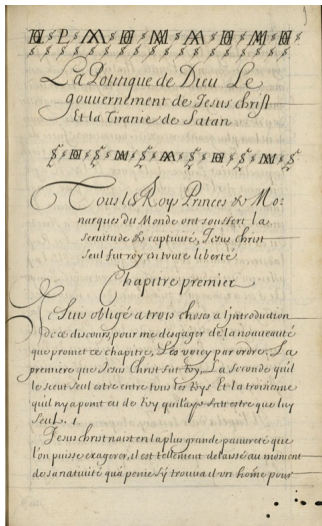 La Politique de Dieu Le
gouuernement de Jesus christ
Et la Tiranie de Satan
Tous les Roys Princes & Mo:
narques du Monde ont souffert la
seruitude & captiuité, Jesus christ
seul fut roy en toute liberté
Chapitre premier
Je suis obligé a trois choses a l'introduction
de ce discours, pour me degager de la nouueauté
que promet ce chapitre, Les voicy par ordre, La
premiere que Jesus Christ fut Roy, La seconde qu'il
le sceut seul estre entre tous les Roys Et la troisieme
qu'il n'y a point eu de Roy qui l'aye sceu estre que luy
seul. 1.
Jesus christ naist en la plus grande pauureté que
l'on puisse exagerer, il est tellement delaissé au moment
de sa natiuité qu'a penie s'y trouua il vn home pour